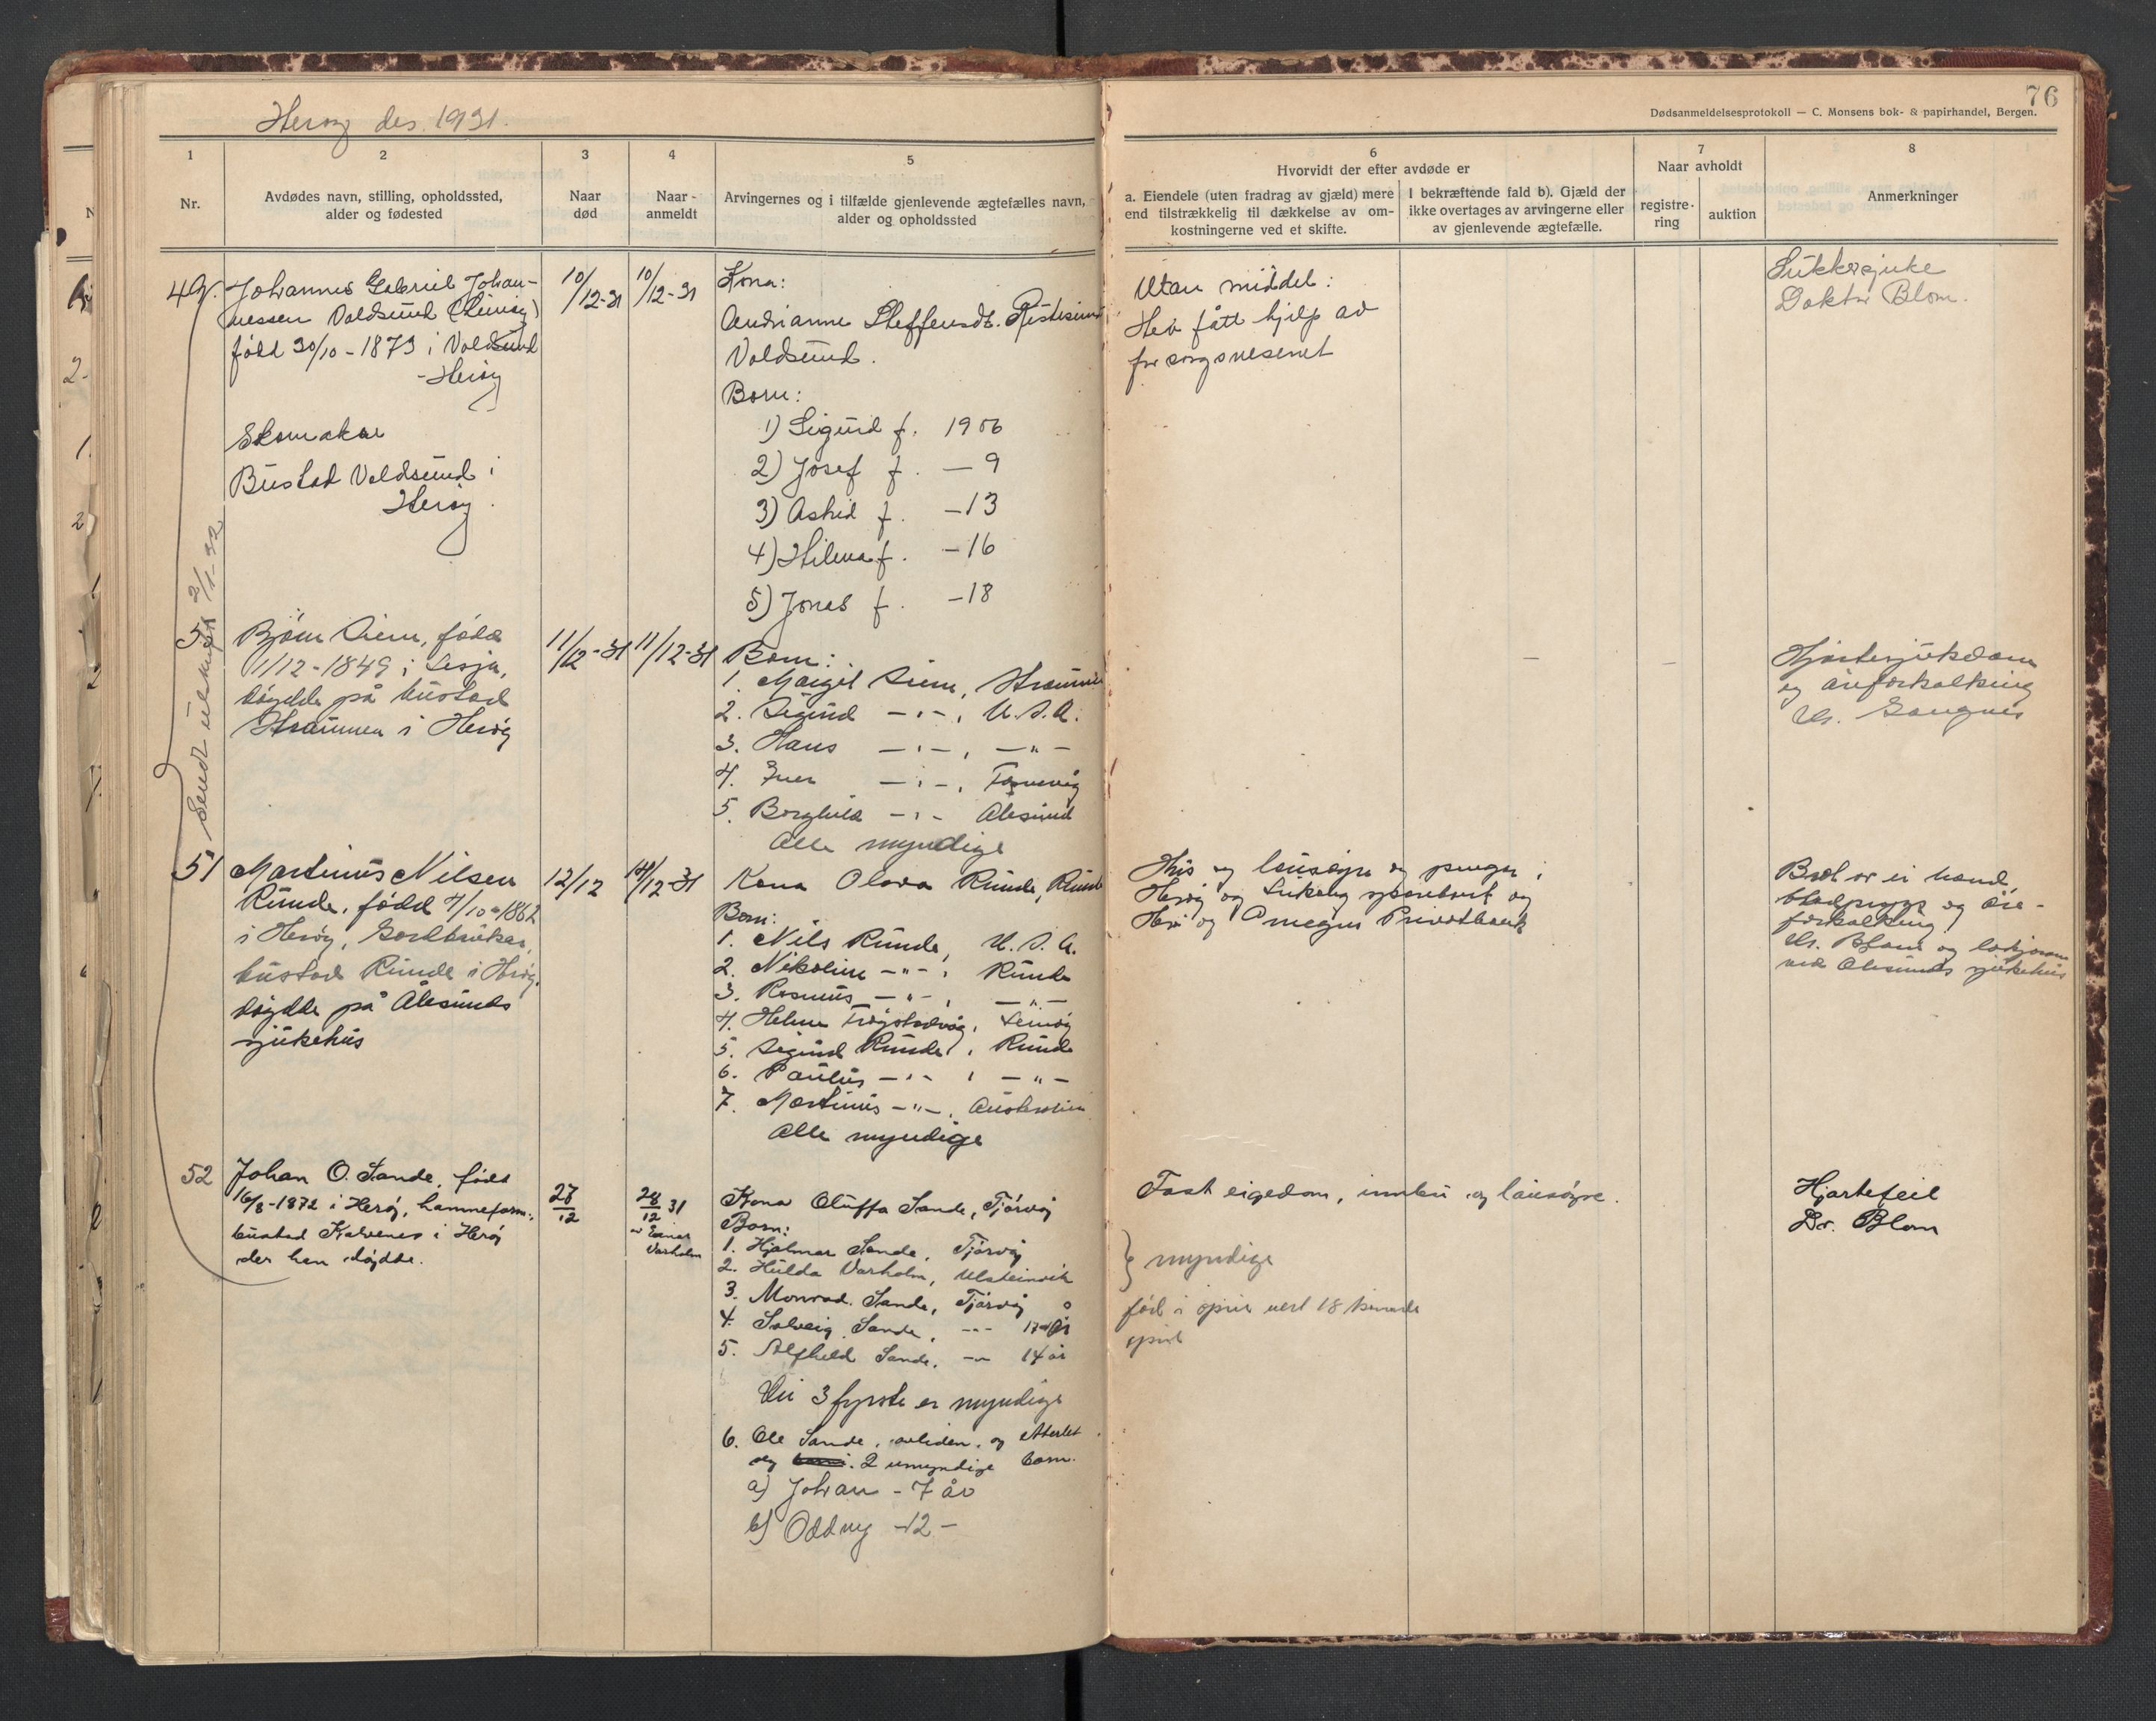 Herøy des. 1931.
76
Dødsanmeldelsesprotokoll — C. Monsens bok- & papirhandel, Bergen.
1
Nr.
2
Avdødes navn, stilling, opholdssted,
alder og fødested
3
Naar
død
4
Naar-
anmeldt
5
Arvingernes og i tilfælde gjenlevende ægtefælles navn,
alder og opholdssted
6
Hvorvidt der efter avdøde er
a. Eiendele (uten fradrag av gjæld) mere
end tilstrækkelig til dækkelse av om-
kostningerne ved et skifte.
I bekræftende fald b). Gjæld der
ikke overtages av arvingerne eller
av gjenlevende ægtefælle.
7
Naar avholdt
registre-
ring
auktion
8
Anmerkninger
49.
Johannes Gabriel Johan-
nessen Voldsund (Leinøy)
født 30/10-1873 i Voldsund
- Herøy
Skomakar
Bustad Voldsund i
Herøy.
10/12-31
10/12-31
Kona:
Andrianne Steffensdt.
Voldsund.
Born:
1) Sigurd f. 1906
2) Josef f. — 9
3) Astrid f. —13
4) Hilma f. —16
5) Jonas f. —18
Utan middel:
Hev fått hjelp av
forsorgsvesenet
Sukkersjuke
Doktor Blom.
Sendt 2/1-32
Bjørn Siem, fødd
1/12-1849 i Lesja,
døydde på bustad
Straumen i Herøy
11/12-31
11/12-31
Born:
1. Margit Siem,
2. Sigurd —"—, U.S.A.
3. Hans —"—, —"—
4. Iver —"—,
5. Borghild —"— Ålesund
Alle myndige
—
—
Hjartesjukdom
og åreforkalking
Dr.
51
Martinus Nilsen
Runde, fødd 4/10-1862
i Herøy, Gardbrukar,
bustad Runde i Herøy,
døydde på Ålesunds
sjukehus
12/12
12-31
Kona Olava Runde, Runde
Born:
1. Nils Runde, U.S.A.
2. Nikoline —"—, Runde
3. Rasmus —"—, —"—
4. Helene
5. Sigurd Runde, Runde
6. Paulus —"—, —"—
7. Martinus —"—,
Alle myndige
Hus og lausøyre og pengar i
Herøy og sparebank og
og Omegns Privatbank
Brot av ei hand,
og åre-
forkalking
Dr. Blom og
ved Ålesunds sjukehus
52
Johan O. Sande, fødd
16/8-1872 i Herøy,
bustad i Herøy
der han døydde.
27/12
28/12 31
v Einar
Varholm
Kona Oluffa Sande, Tjørvåg
Born:
1. Hjalmar Sande, Tjørvåg
2. Hulda Varholm, Ulsteinvik
3. Monrad Sande, Tjørvåg
4. Solveig Sande, —"— 17 år
5. Alfhild Sande, —"— 14 år
Dei 3 fyrste er myndige
6. Ole Sande, avliden, og etterlet
seg 2 umyndige born.
a) Johan - 7 år
b) Oddny -12 -
Fast eigedom, innbu og lausøyre.
} myndige
fød i april vert 18
april
Hjartefeil
Dr. Blom